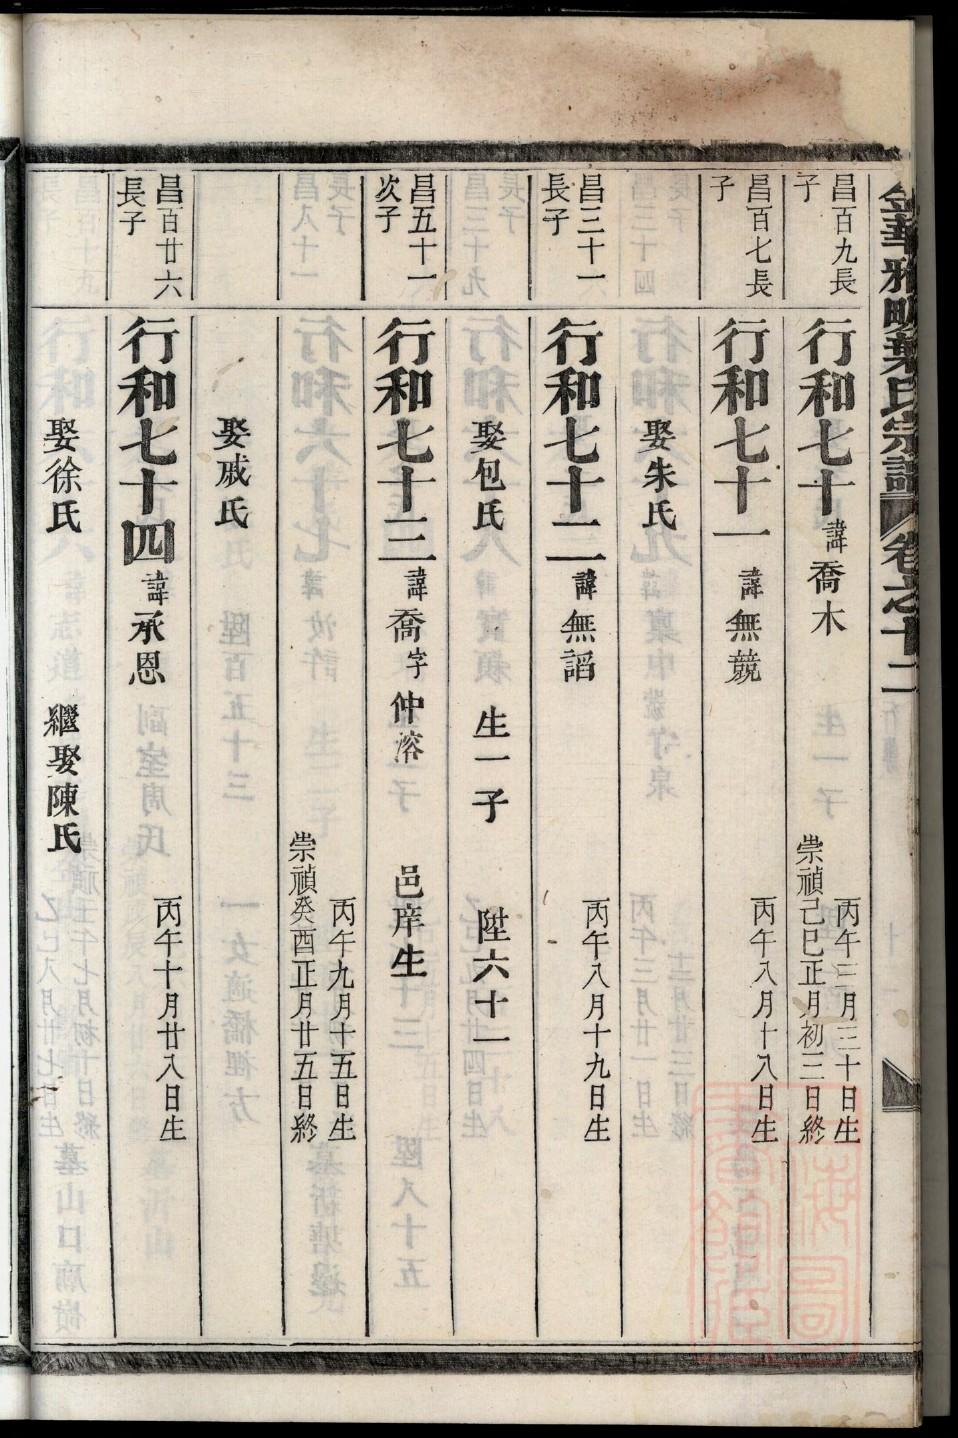 金華雅畈葉氏宗譜 卷之十二 行傳
昌百九長
子
行和七十 諱喬木
丙午三月三十日生
崇禎己巳正月初三日終
昌百七長
子
行和七十一 諱無競
丙午八月十八日生
娶朱氏
昌三十一
長子
行和七十二 諱無謟
丙午八月十九日生
娶包氏 生一子 陞六十一
昌五十一
次子
行和七十三 諱喬字仲溶 邑庠生
丙午九月十五日生
崇禎癸酉正月廿五日終
娶戚氏
昌百廿六
長子
行和七十四 諱承恩
丙午十月廿八日生
娶徐氏 繼娶陳氏